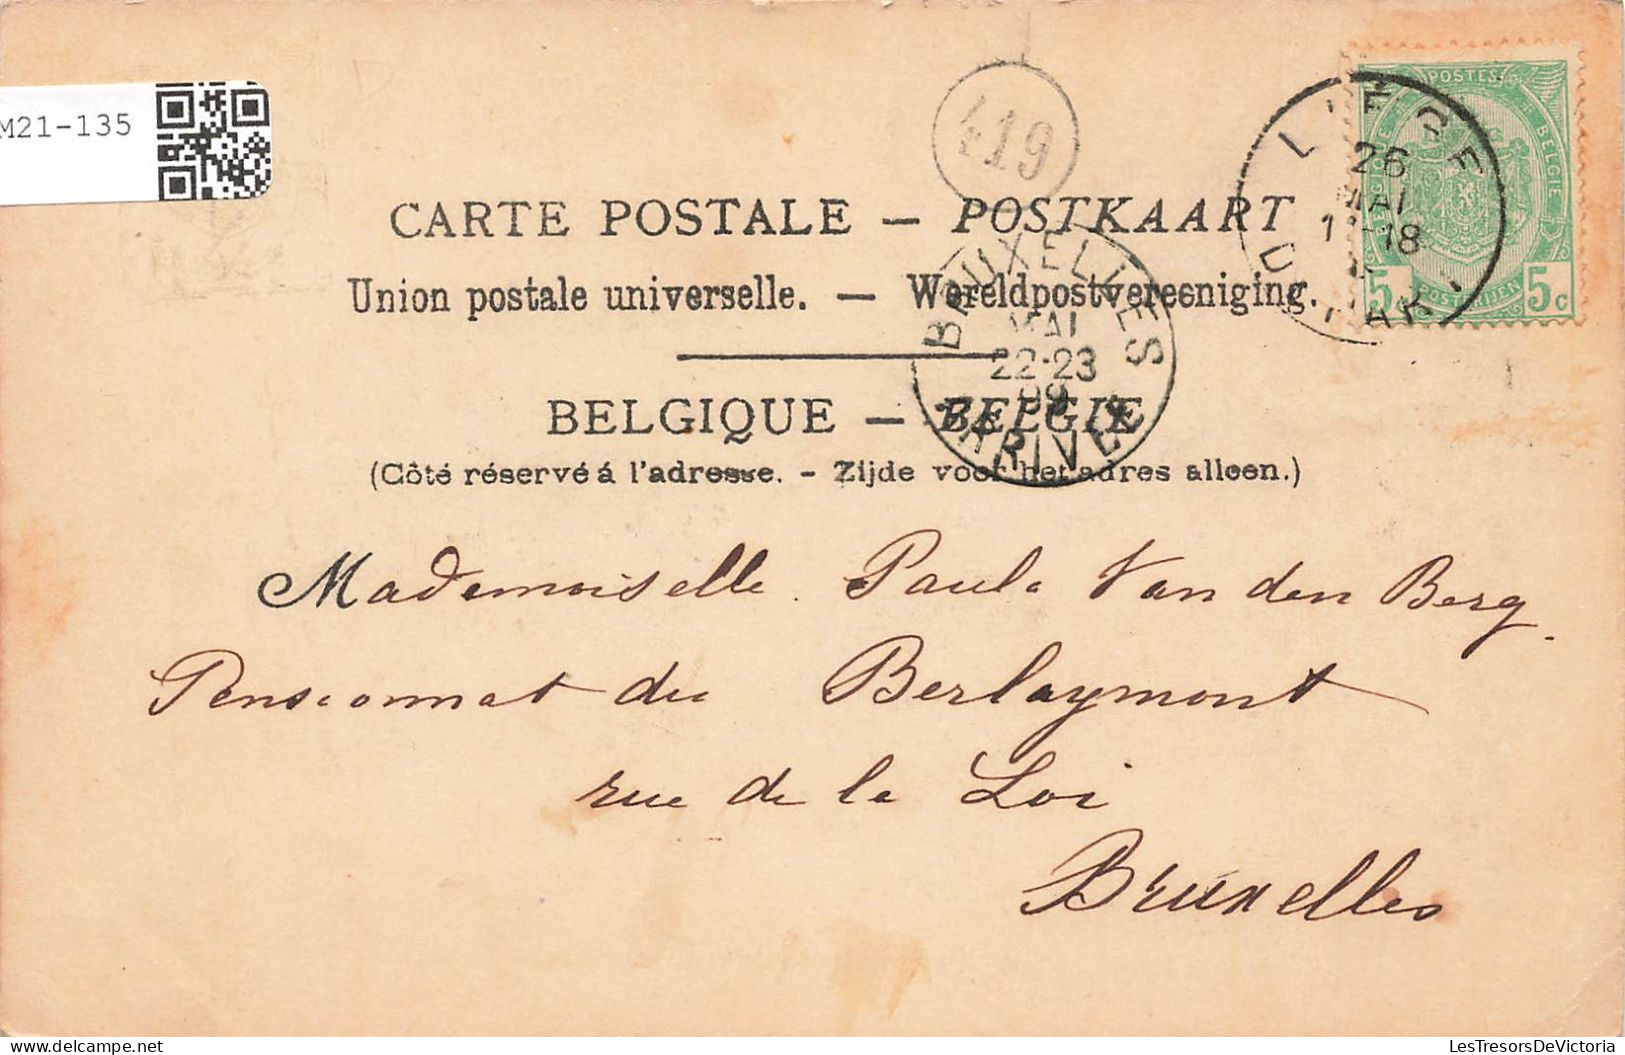 M21-135
419
CARTE POSTALE — POSTKAART
Union postale universelle. — Wereldpostvereeniging.
BELGIQUE — BELGIE
(Côté réservé á l'adresse. - Zijde voor het adres alleen.)
POSTES
BELGIE
BELGIQUE
POSTERIJEN
5 5c
LIÉGE
26
MAI
18
BRUXELLES
MAI
22-23
99
ARRIVÉE
Mademoiselle Paula Van den Berg.
Pensionnat du Berlaymont
rue de la Loi
Bruxelles
LesTresorsDeVictoria
LesTresorsDeVictoria.com